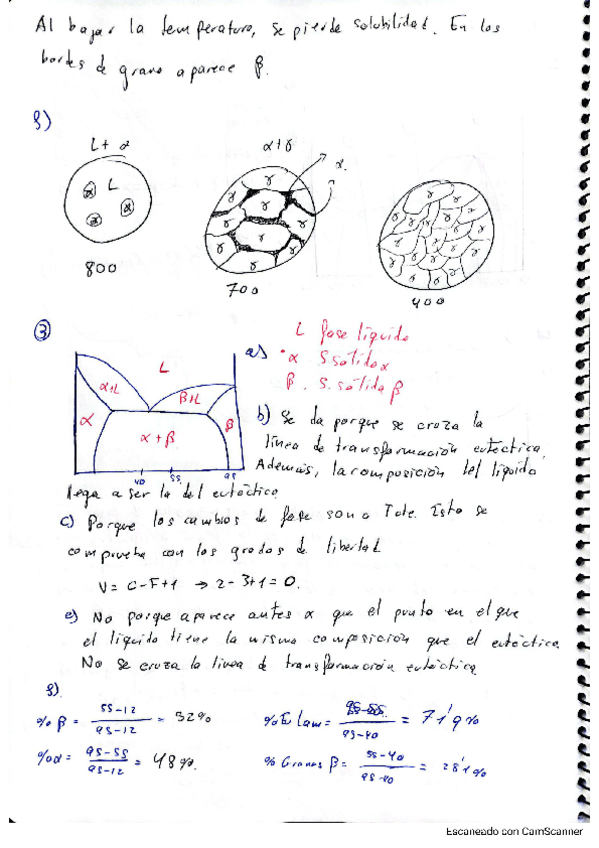 Al bajar la temperatura, se pierde solubilidad. En los
bordes de grano aparece β.
f)
L + α
α+γ
α.
L
α α α
γ γ γ γ γ γ γ γ
γ
800
700
400
3
a) L fase líquida
• α S. sólida α
β . S. sólida β
L
α+L
β+L
α
β
α + β
40 55 95
b) Se da porque se cruza la
línea de transformación eutéctica.
Además, la composición del líquido
llega a ser la del eutéctico.
c) Porque los cambios de fase son a T cte. Esto se
comprueba con los grados de libertad
V = C-F+1 → 2-3+1=0.
e) No porque aparece antes α que el punto en el que
el líquido tiene la misma composición que el eutéctico.
No se cruza la línea de transformación eutéctica.
f).
% β = 55-12 / 95-12 = 52%
% Eu lam = 95-55 / 95-40 = 71'9%
% α = 95-55 / 95-12 = 48%.
% Granos β = 55-40 / 95-40 = 28'1%
Escaneado con CamScanner